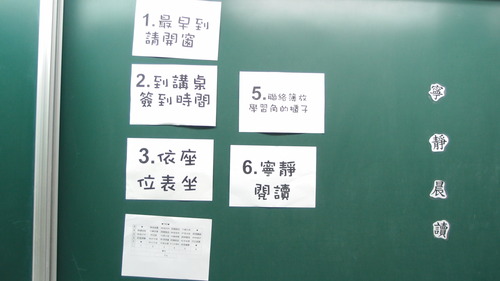 1.最早到
請開窗
2.到講桌
簽到時間
3.依座
位表坐
5.聯絡簿放
學習角的櫃子
6.寧靜
閱讀
寧靜晨讀